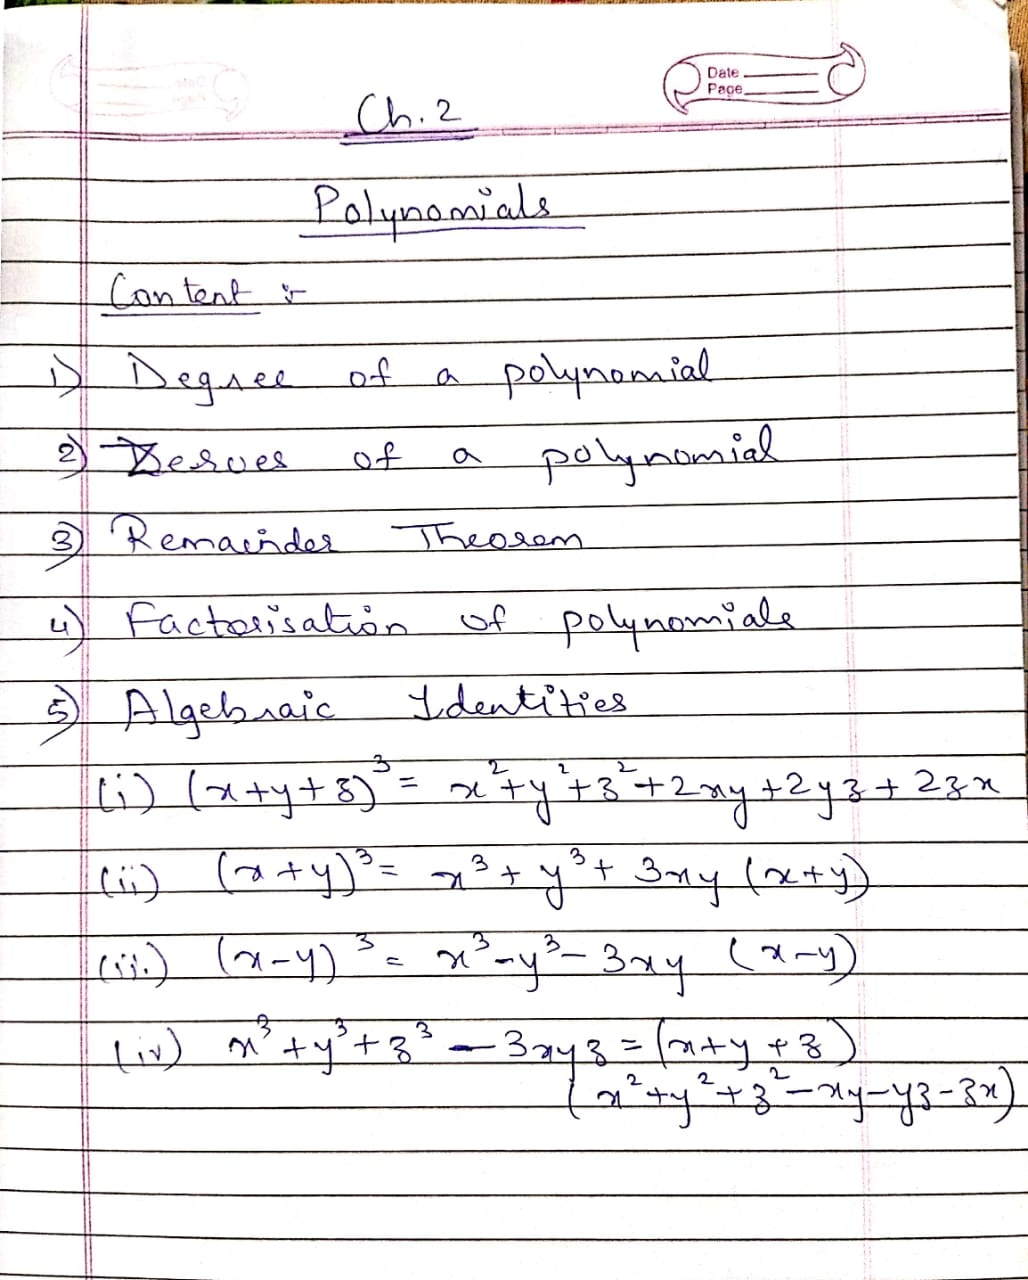 Date
Page
Ch. 2
Polynomials
Content :-
1) Degree of a polynomial
2) Zeroes of a polynomial
3) Remainder Theorem
4) Factorisation of polynomials
5) Algebraic Identities
(i) (x+y+z)³ = x²+y²+z²+2xy+2yz+2zx
(ii) (x+y)³ = x³+y³+3xy (x+y)
(iii.) (x-y)³ = x³-y³-3xy (x-y)
(iv) x³+y³+z³-3xyz = (x+y+z)
(x²+y²+z²-xy-yz-zx)